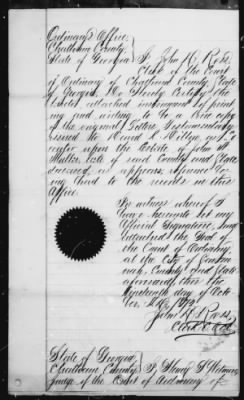 Ordinary's Office
Chatham County
State of Georgia I, John R. Ross,
Clerk of the Court
of Ordinary of Chatham County, State
of Georgia, Do Hereby Certify, the
attached instrument of print
ing and writing to be a true copy
of the original Letters Testamentary
issued to
upon the Estate of John
late of said County and State
deceased, as appears, reference be
ing had to the records in this
Office.
In witness whereof I
have hereunto set my
Official Signature, and
attached the Seal of
the Court of Ordinary,
at the City of Savan
nah, County and State
aforesaid, this the
day of Octo
ber,
John R. Ross
State of Georgia,
Chatham County I, Henry
Judge of the Court of Ordinary of